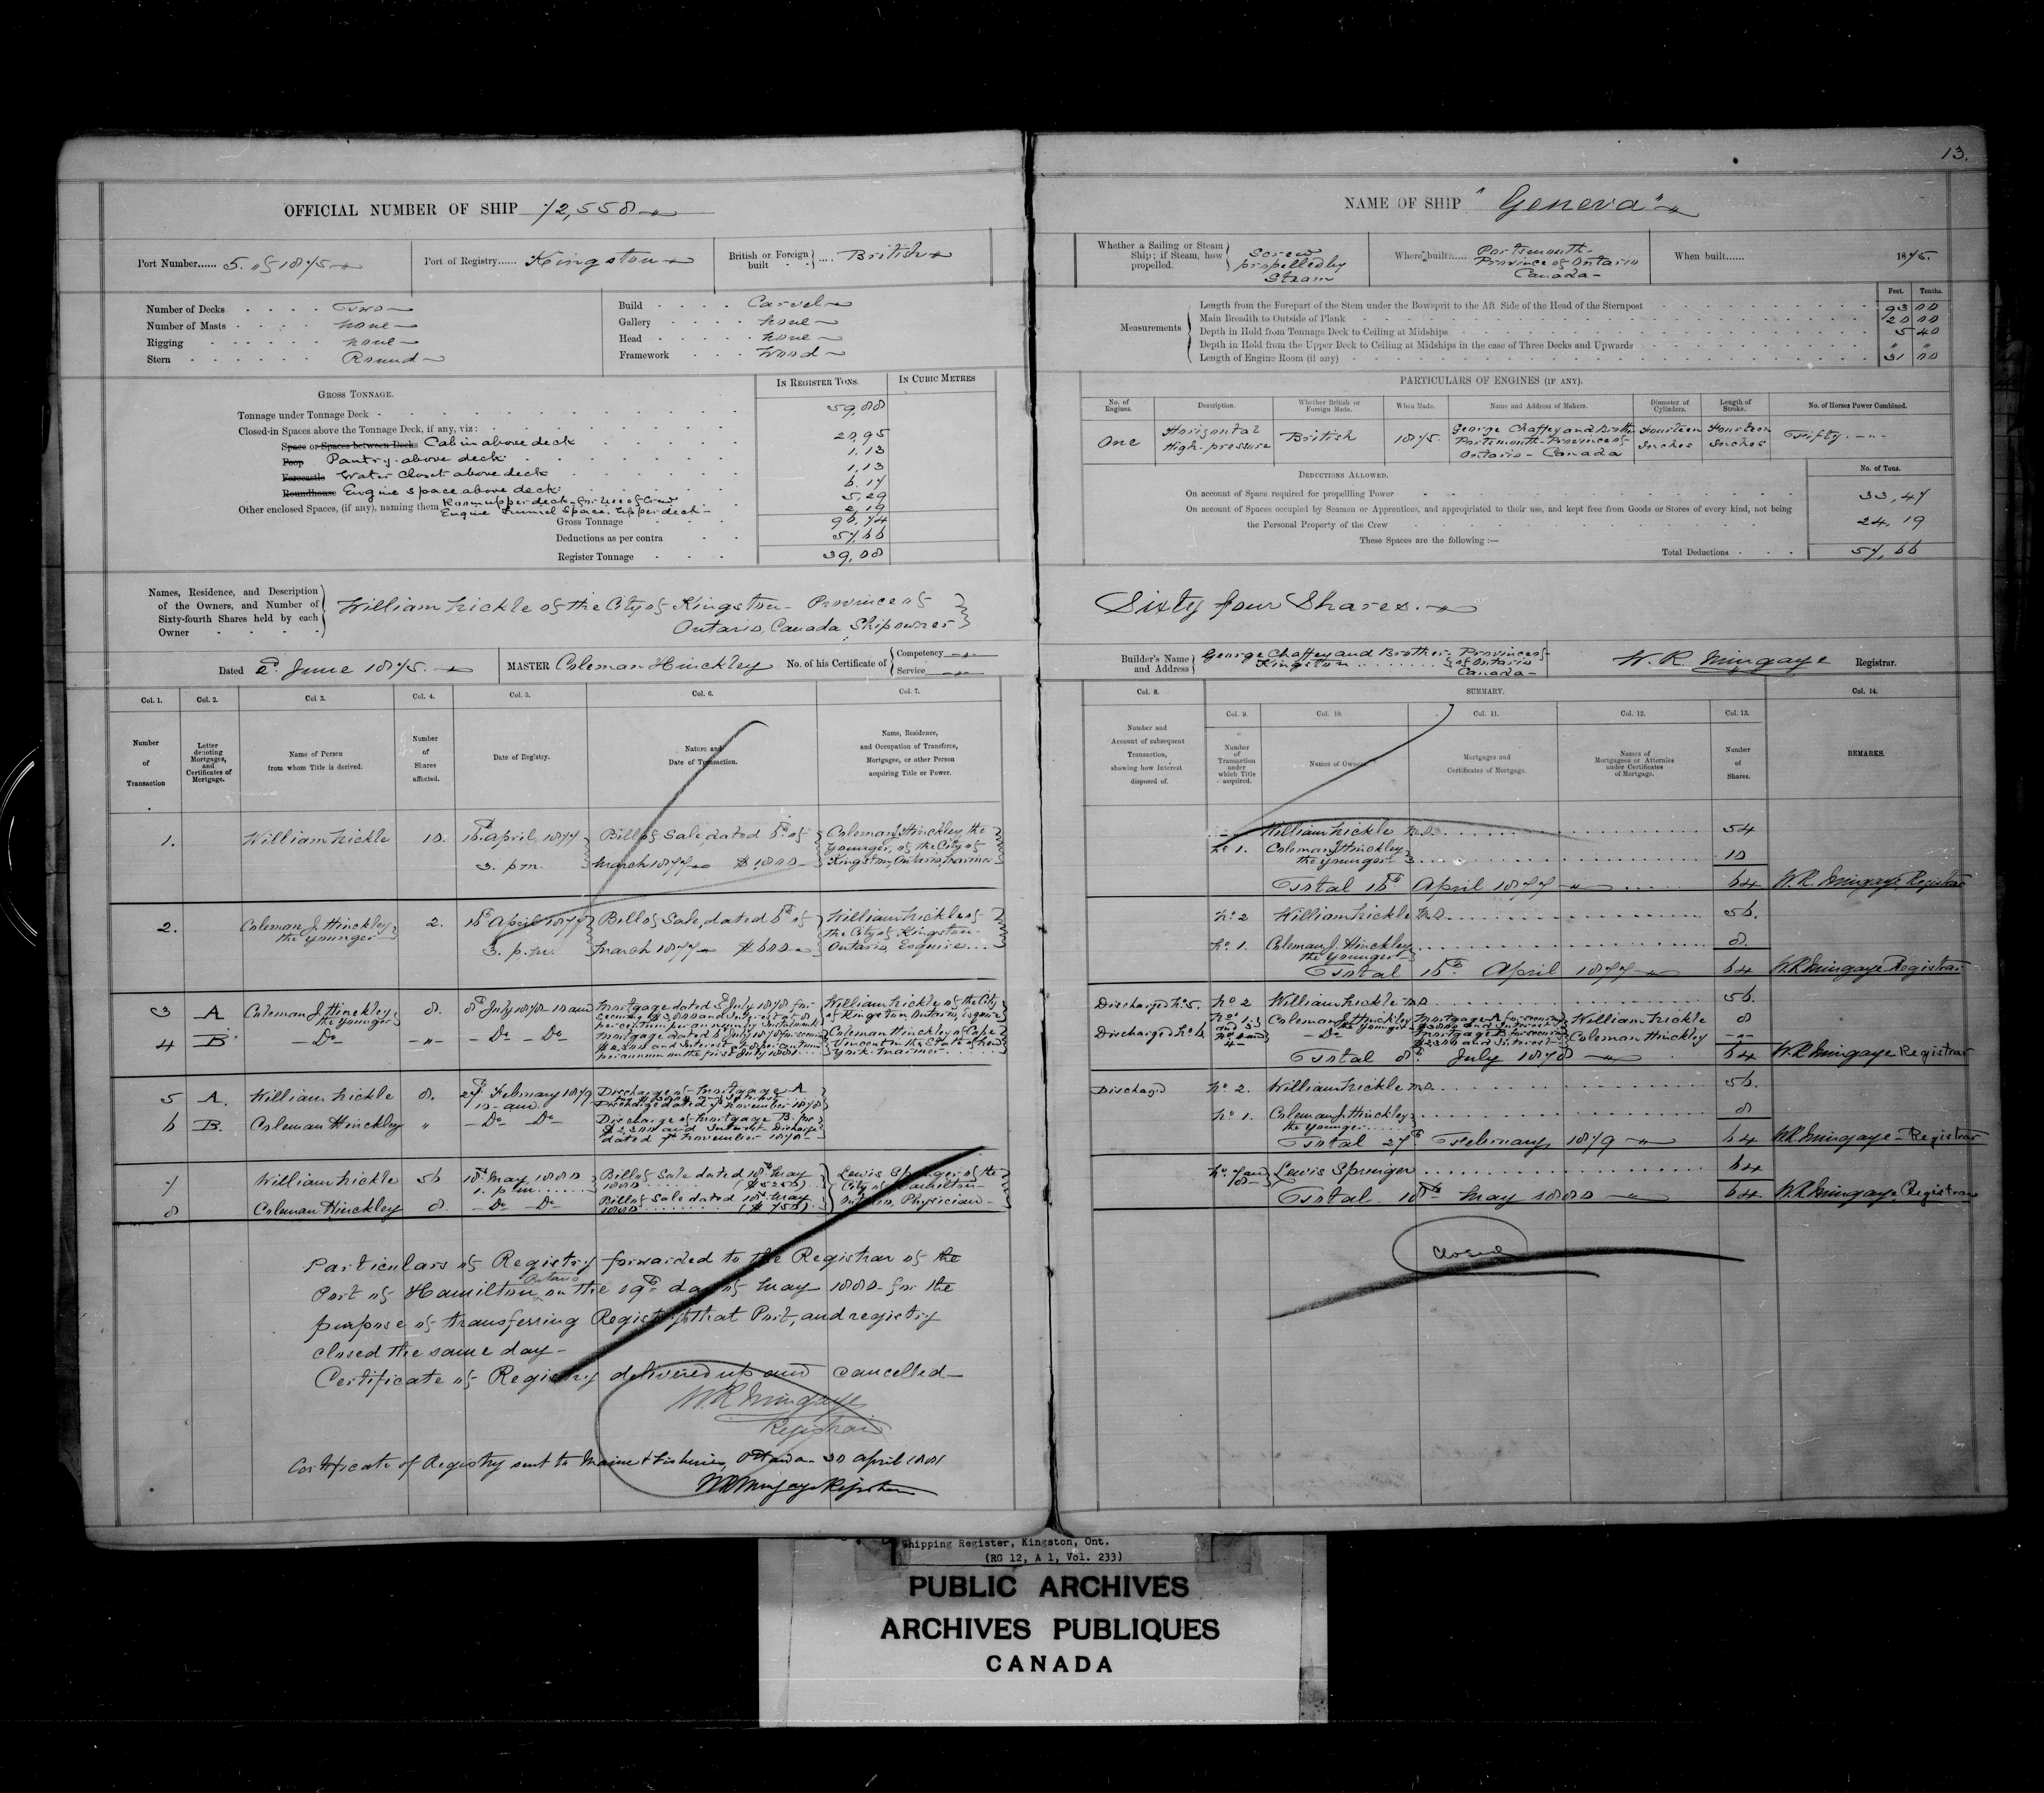 13.
OFFICIAL NUMBER OF SHIP 72,558
NAME OF SHIP "Geneva"
Port Number...... 5. of 1875
Port of Registry...... Kingston
British or Foreign built .... British
Whether a Sailing or Steam Ship; if Steam, how propelled. Screw propelled by Steam
Where built...... Portsmouth - Province of Ontario Canada -
When built...... 1875.
Number of Decks Two
Number of Masts none
Rigging none
Stern Round
Build Carvel
Gallery none
Head none
Framework Wood
Measurements
Feet. Tenths.
Length from the Forepart of the Stem under the Bowsprit to the Aft Side of the Head of the Sternpost 93 00
Main Breadth to Outside of Plank 20 00
Depth in Hold from Tonnage Deck to Ceiling at Midships 5 40
Depth in Hold from the Upper Deck to Ceiling at Midships in the case of Three Decks and Upwards " "
Length of Engine Room (if any) 31 00
GROSS TONNAGE.
IN REGISTER TONS.
IN CUBIC METRES
Tonnage under Tonnage Deck 59,88
Closed-in Spaces above the Tonnage Deck, if any, viz:
Space or Spaces between Decks Cabin above deck 20,95
Poop Pantry above deck 1.13
Forecastle Water Closet above deck 1,13
Roundhouse Engine space above deck 6.17
Other enclosed Spaces, (if any), naming them Room upper deck - for use of Crew 5,29
Engine Funnel Space. Upper deck - 2,19
Gross Tonnage 96,74
Deductions as per contra 57,66
Register Tonnage 39,08
PARTICULARS OF ENGINES (IF ANY).
No. of Engines. Description. Whether British or Foreign Made. When Made. Name and Address of Makers. Diameter of Cylinders. Length of Stroke. No. of Horses Power Combined.
One Horizontal High-pressure British 1875. George Chaffey and Brother Portsmouth - Province of Ontario - Canada Fourteen Inches Fourteen Inches Fifty. - " -
DEDUCTIONS ALLOWED.
No. of Tons.
On account of Space required for propelling Power 33,47
On account of Spaces occupied by Seamen or Apprentices, and appropriated to their use, and kept free from Goods or Stores of every kind, not being
the Personal Property of the Crew 24,19
These Spaces are the following :—
Total Deductions 57,66
Names, Residence, and Description of the Owners, and Number of Sixty-fourth Shares held by each Owner
William Nickle of the City of Kingston - Province of
Ontario, Canada, Shipowner
Sixty four Shares.
Dated 2d June 1875.
MASTER Coleman Hinckley
No. of his Certificate of Competency Service
Builder's Name and Address George Chaffey and Brother. Kingston Province of Ontario Canada -
W. R. Mingaye Registrar.
Col. 1. Col. 2. Col 3. Col. 4. Col. 5. Col. 6. Col. 7.
Number of Transaction
Letter denoting Mortgages, and Certificates of Mortgage.
Name of Person from whom Title is derived.
Number of Shares affected.
Date of Registry.
Nature and Date of Transaction.
Name, Residence, and Occupation of Transferee, Mortgagee, or other Person acquiring Title or Power.
Col. 8. SUMMARY. Col. 14.
Col. 9. Col. 10. Col. 11. Col. 12. Col. 13.
Number and Account of subsequent Transaction, showing how Interest disposed of.
Number of Transaction under which Title acquired.
Names of Owners
Mortgages and Certificates of Mortgage.
Names of Mortgagees or Attornies under Certificates of Mortgage.
Number of Shares.
REMARKS.
1. William Nickle 10. 16th April 1877 3. pm. Bill of Sale, dated 6th of March 1877 $1000 Coleman J. Hinckley, the younger, of the City of Kingston, Ontario, Mariner
William Nickle 54
No 1. Coleman J. Hinckley the younger 10
Total 16th April 1877 64 W. R. Mingaye Registrar
2. Coleman J. Hinckley the younger 2. 16th April 1877 3. p.m. Bill of Sale, dated 6th of March 1877 $600 William Nickle of the City of Kingston. Ontario, Esquire
No 2 William Nickle 56.
No 1. Coleman J. Hinckley the younger 8.
Total 16th April 1877 64 W. R. Mingaye Registrar
3 A Coleman J. Hinckley, the younger 8. 8th July 1878 10 am Mortgage dated 5th July 1878 for securing $3,000 and Interest at 8 per centum per annum by Instalments William Nickle of the City of Kingston, Ontario, Esquire
4 B - Do - - " - - Do - Do Mortgage dated 5th July 1878 for securing $2,300 and Interest at 8 per centum per annum on the first July 1881 Coleman Hinckley of Cape Vincent in the State of New York - Mariner
Discharged No 5. No 2 William Nickle 56.
Coleman J. Hinckley the younger Mortgage A for securing $3000 and Interest William Nickle 8
Discharged No 6. - Do Mortgage B for securing $2300 and Interest Coleman Hinckley - " -
Total 8th July 1878 64 W. R. Mingaye Registrar
5 A. William Nickle 8. 27th February 1879 10 - am. Discharge of Mortgage A Discharge dated 7th November 1878
6 B. Coleman Hinckley " - Do Do Discharge of Mortgage B. for $2,300 and Interest Discharge dated 7th November 1878
Discharged No 2. William Nickle 56.
No 1. Coleman J. Hinckley the younger 8
Total 27th February 1879 64 W. R. Mingaye - Registrar
7 William Nickle 56 18th May 1880 1. p m. Bill of Sale dated 18th May 1880 ($5250) Lewis Springer of the City of Hamilton - Ontario, Physician -
8 Coleman Hinckley 8. - Do - Do Bill of Sale dated 18th May 1880 ($750)
No 7 and 8 Lewis Springer 64
Total 18th May 1880 64 W. R. Mingaye Registrar
Particulars of Registry forwarded to the Registrar of the
Port of Hamilton, Ontario on the 19th day of May 1880 for the
purpose of transferring Registry to that Port, and registry
closed the same day -
Certificate of Registry delivered up and cancelled -
W. R. Mingaye
Registrar
Certificate of Registry sent to Marine & Fisheries, Ottawa 30 April 1881
W R Mingaye Registrar
Closed
Shipping Register, Kingston, Ont.
(RG 12, A 1, Vol. 233)
PUBLIC ARCHIVES
ARCHIVES PUBLIQUES
CANADA